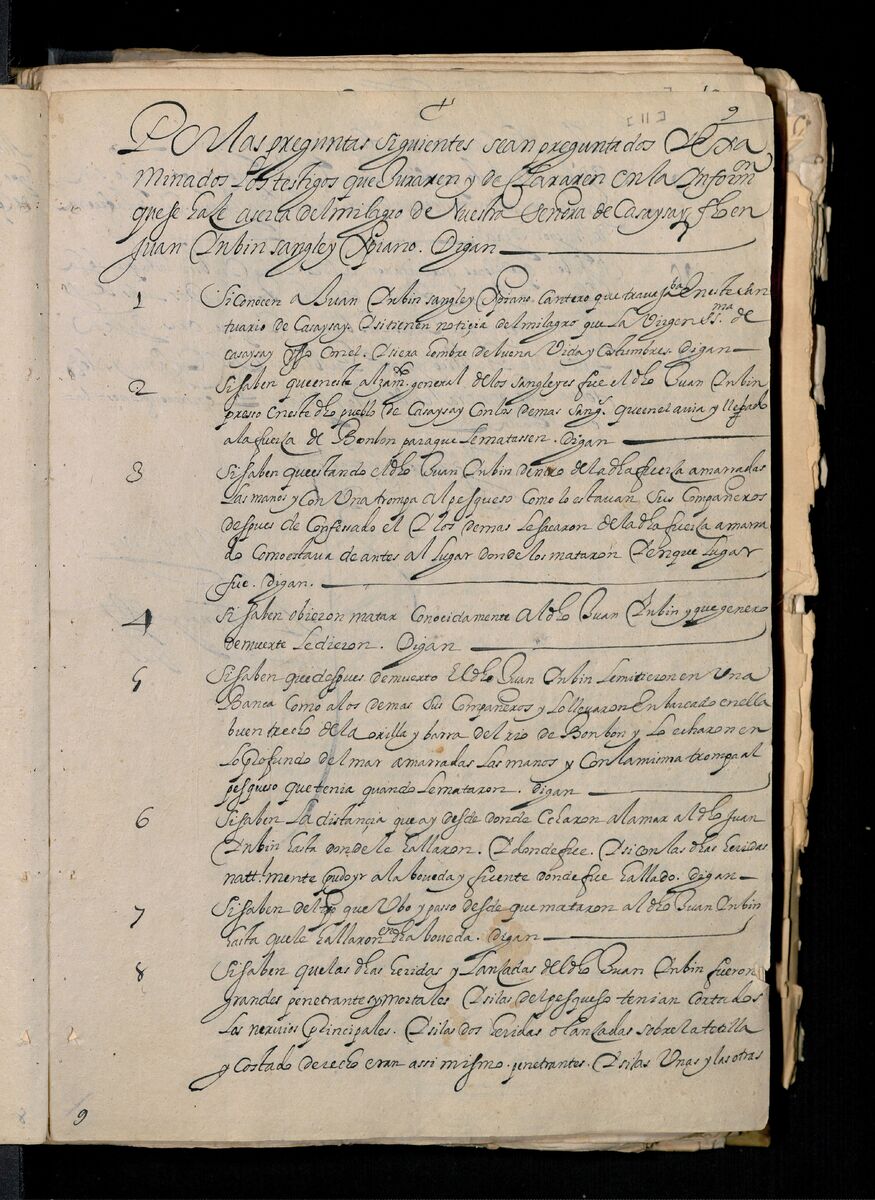 9
[11]
Por las preguntas siguientes sean preguntados y exa
minados los testigos que Juraren y declararen en la Inform.on
que se haze acerca del milagro de Nuestra Señora de Casaysay, fho en
Juan Ynbin sangley Xpiano. Digan
1 Si conocen a Juan Ynbin sangley Xpiano. Cantero que travajaba en este san
tuario de Casaysay. Y si tienen notiçia del milagro que la Virgen SS.ma de
casaysay hizo con el. Y si era hombre de buena Vida y costumbres. Digan
2 Si saben que en este alzam.to general de los sangleyes fue el dho Juan Ynbin
presso en este dho pueblo de Casaysay con los demas sang.s que en el avia y llevado
a la fuerza de Bonbon para que le matassen. Digan
3 Si saben que estando el dho Juan Ynbin dentro de la dha fuerza amarradas
las manos y con Una trompa al pesqueso como lo estavan sus compañeros
despues de confessado el y los demas le sacaron de la dha fuerza amarra
do como estava de antes al lugar donde los mataron Y en que lugar
fue. Digan.
4 Si saben o bieron matar conocidamente al dho Juan Ynbin y que genero
de muerte le dieron. Digan
5 Si saben que despues de muerto el dho Juan Ynbin le metieron en Una
Banca como a los demas sus compañeros y lo llevaron enbarcado en ella
buen trecho de la orilla y barra del rio de Bonbon y lo echaron en
lo profundo del mar amarradas las manos y con la misma trompa al
pesqueso que tenia quando le mataron. Digan
6 Si saben la distançia que ay desde donde echaron a la mar al dho Juan
Ynbin hasta donde le hallaron. Y donde fue. Y si con las dhas heridas
natt.lmente pudo yr a la boveda y fuente donde fue hallado. Digan
7 Si saben del tpo que Ubo y passo desde que mataron al dho Juan Ynbin
hasta que le hallaron en la dha boveda. Digan
8 Si saben que las dhas heridas y lanzadas del dho Juan Ynbin fueron
grandes penetrantes y mortales Y si las del pesqueso tenian cortados
los nervios principales. Y si las dos heridas o lanzadas sobre la tetilla
y costado derecho eran assi mismo penetrantes. Y si las Unas y las otras
9